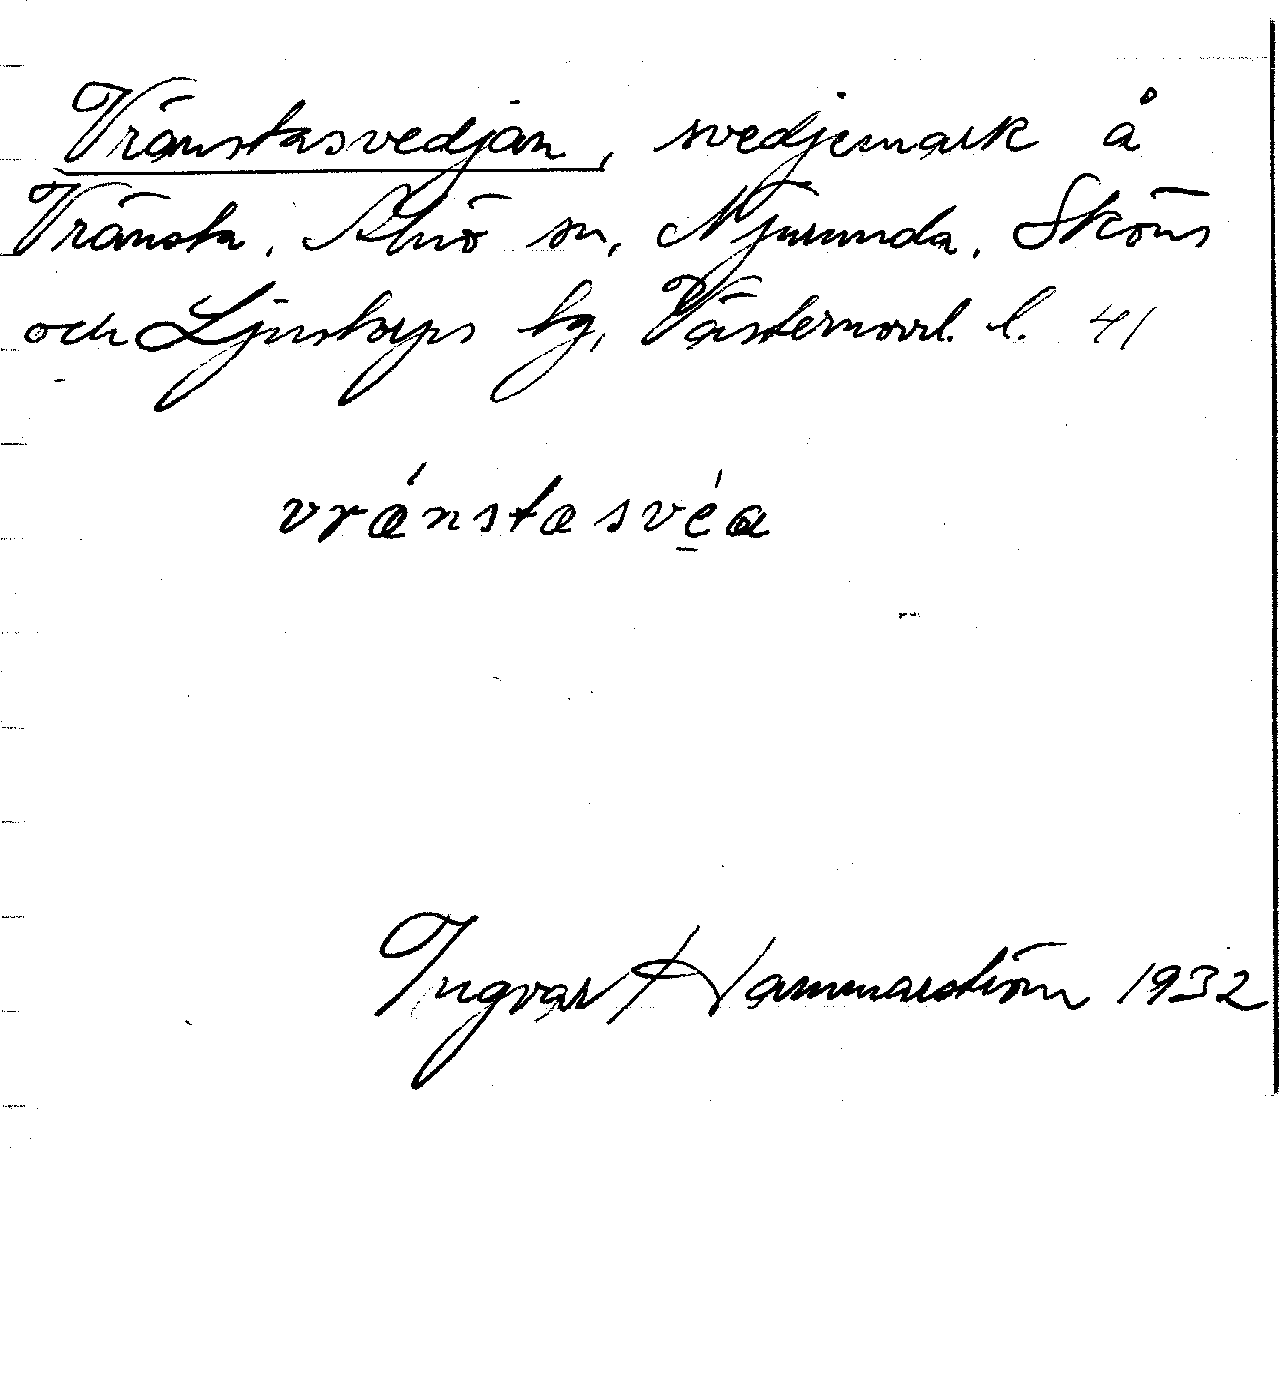 Vränstasvedjan, svedjemark å
Vränsta, Alnö sn, Njurunda, Sköns
och Ljustorps tg, Västernorrl. l. 41
vrǽnstasvé̱a
Ingvar Hammarström 1932